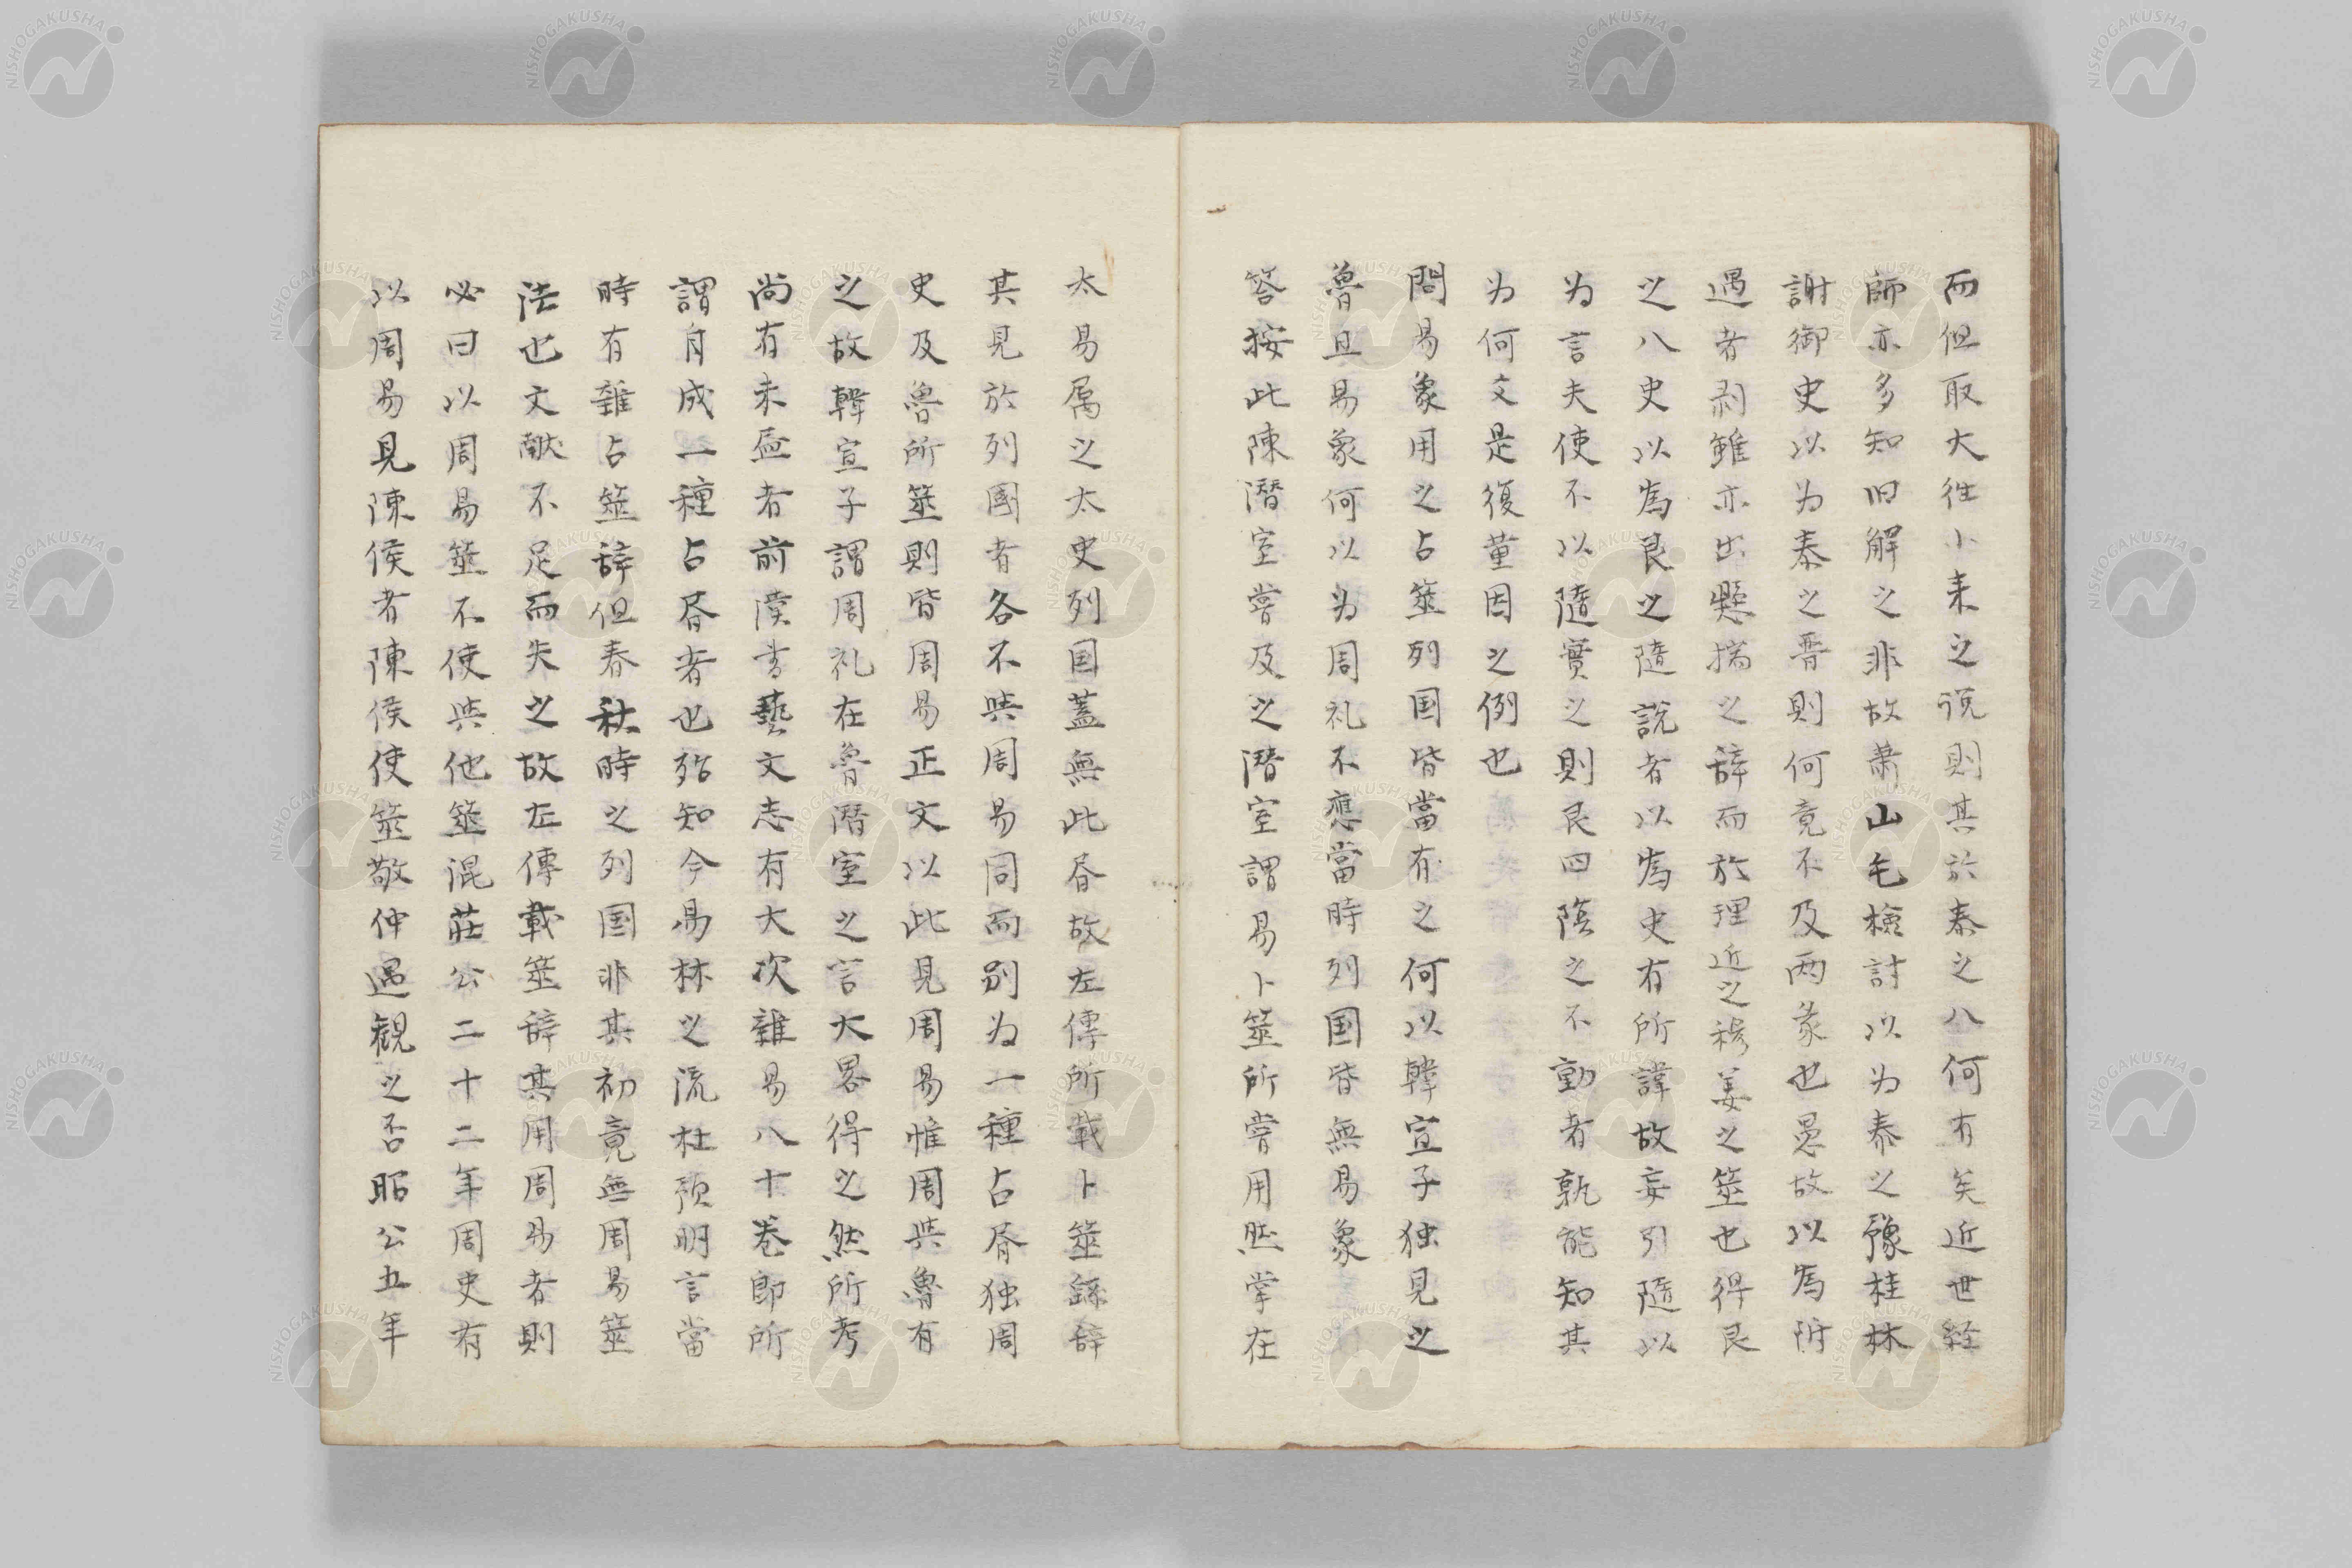 而但取大往小来之説則其於泰之八何有矣近世経
師亦多知旧解之非故蕭山毛檢討以为泰之豫桂林
謝御史以为泰之晋則何竟不及两彖也愚故以為附
遇者剥雖亦出懸揣之辞而於理近之穆姜之筮也得艮
之八史以為艮之隨說者以為史有所諱故妄引隨以
为言夫使不以隨實之則艮四陰之不動者孰能知其
为何文是復董因之例也
問易象用之占筮列国皆當有之何以韓宣子独見之
魯且易象何以为周礼不應當時列国皆無易象
答按此陳潛室嘗及之潛室謂易卜筮所嘗用然掌在
太易属之太史列国蓋無此昏故左傳所載卜筮繇辞
其見於列國者各不與周易同而别为一種占昏独周
史及魯所筮則皆周易正文以此見周易惟周與魯有
之故韓宣子謂周礼在魯潛室之言大畧得之然所考
尚有未盡者前漢書藝文志有大次雜易八十卷即所
謂自成一種占昏者也殆知今易林之流杜預明言當
時有雜占筮辞但春秋時之列国非其初竟無周易筮
法也文献不足而失之故左傳載筮辞其用周易者則
必曰以周易筮不使與他筮混莊公二十二年周史有
以周易見陳侯者陳侯使筮敬仲遇観之否昭公五年